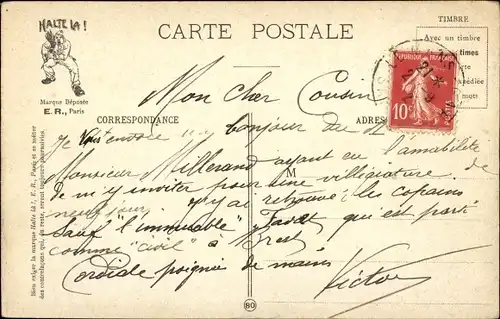 HALTE LÀ !
Marque Déposée
E. R., Paris
CARTE POSTALE
TIMBRE
Avec un timbre
times
mots
RÉPUBLIQUE FRANÇAISE
10c
CORRESPONDANCE
ADRES
M
Mon Cher Cousin
Je Vous envoie un bonjour du
Monsieur Millerand ayant eu l'amabilité
de m'y inviter pour une villégiature de
neuf jours j'y ai retrouvé les copains
Sauf "l'immuable" Favdet qui est parti
comme "civil" à Brest
Cordiale poignée de mains
Victor
80
Bien exiger la marque Halte là !, E. R., Paris et se méfier
des contrefaçons qui, du reste, seront toujours poursuivies.